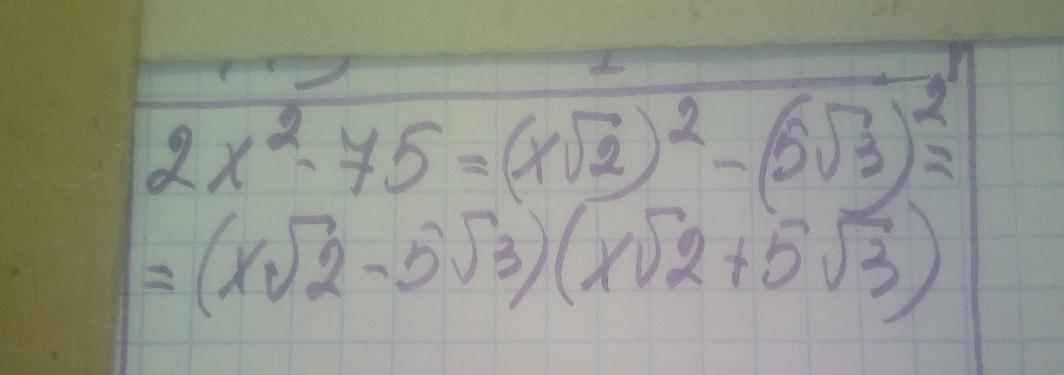 2x² - 75 = (x√2)² - (5√3)² =
= (x√2 - 5√3)(x√2 + 5√3)